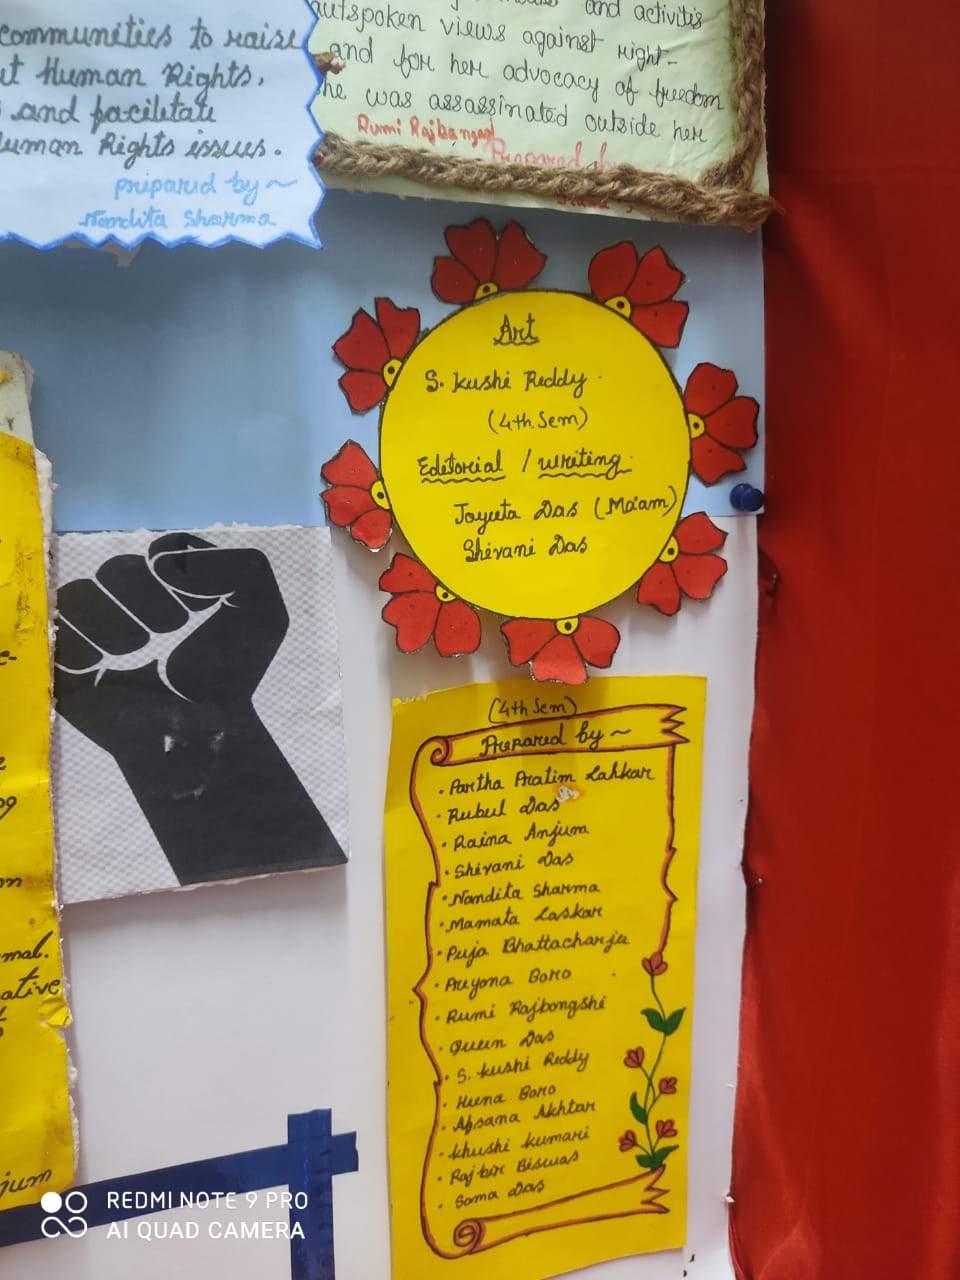 communities to raise
ut Human Rights.
and facilitate
Human Rights issues.
prepared by ~
Nandita Sharma
and activitis
outspoken views against right-
and for her advocacy of freedom
he was assassinated outside her
Rumi Rajbongshi
Prepared by
Art
S. Kushi Reddy
(4th Sem)
Editorial / writing
Joyeeta Das (Ma'am)
Shivani Das
(4th Sem)
Prepared by ~
• Partha Pratim Lahkar
• Rubul Das
• Raina Anjum
• Shivani Das
• Nandita Sharma
• Mamata Laskar
• Puja Bhattacharjee
• Preyona Boro
• Rumi Rajbongshi
• Queen Das
• S. kushi Reddy
• Huna Boro
• Apsana Akhtar
• Khushi kumari
• Rajbir Biswas
• Soma Das
mal.
ative
jum
REDMI NOTE 9 PRO
AI QUAD CAMERA